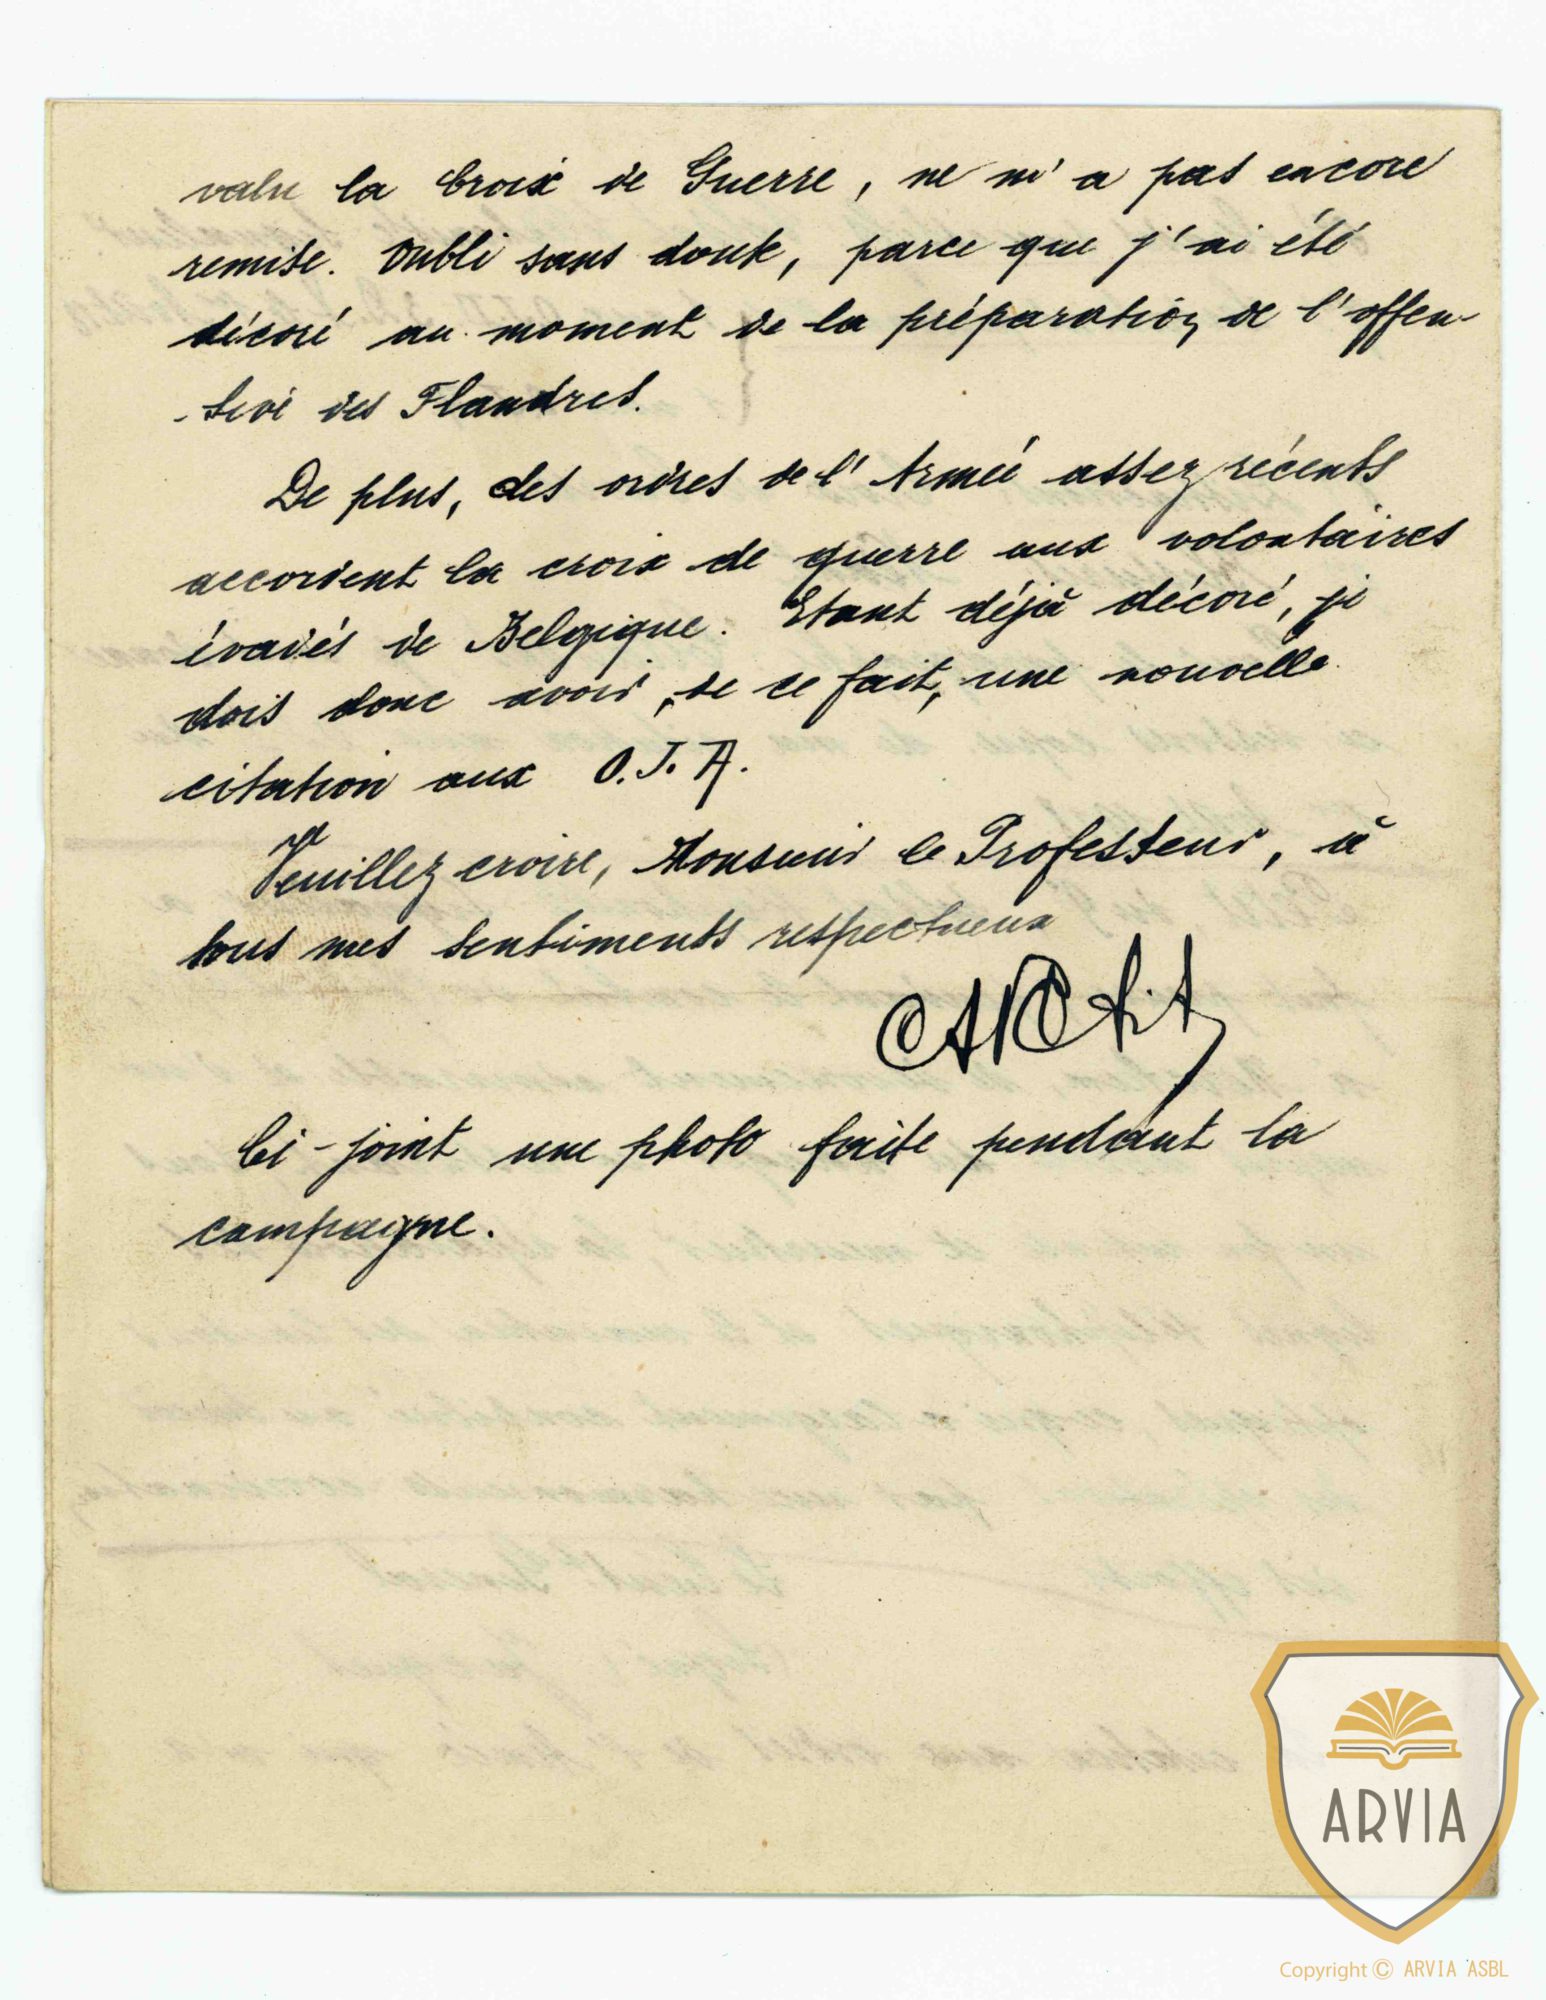 valu la Croix de Guerre, ne m'a pas encore
remise. Oubli sans doute, parce que j'ai été
décoré au moment de la préparation de l'offen-
-sive des Flandres.
De plus, des ordres de l'Armée assez récents
accordent la croix de guerre aux volontaires
évadés de Belgique. Etant déjà décoré, je
dois donc avoir, de ce fait, une nouvelle
citation aux O.J.A.
Veuillez croire, Monsieur le Professeur, à
tous mes sentiments respectueux
Ci-joint une photo faite pendant la
campagne.
ARVIA
Copyright © ARVIA ASBL